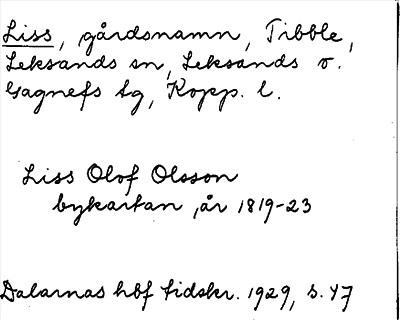 Liss, gårdsnamn, Tibble,
Leksands sn, Leksands o.
Gagnefs tg, Kopp. l.
Liss Olof Olsson
bykartan, år 1819-23
Dalarnas hbf tidskr. 1929, s. 47